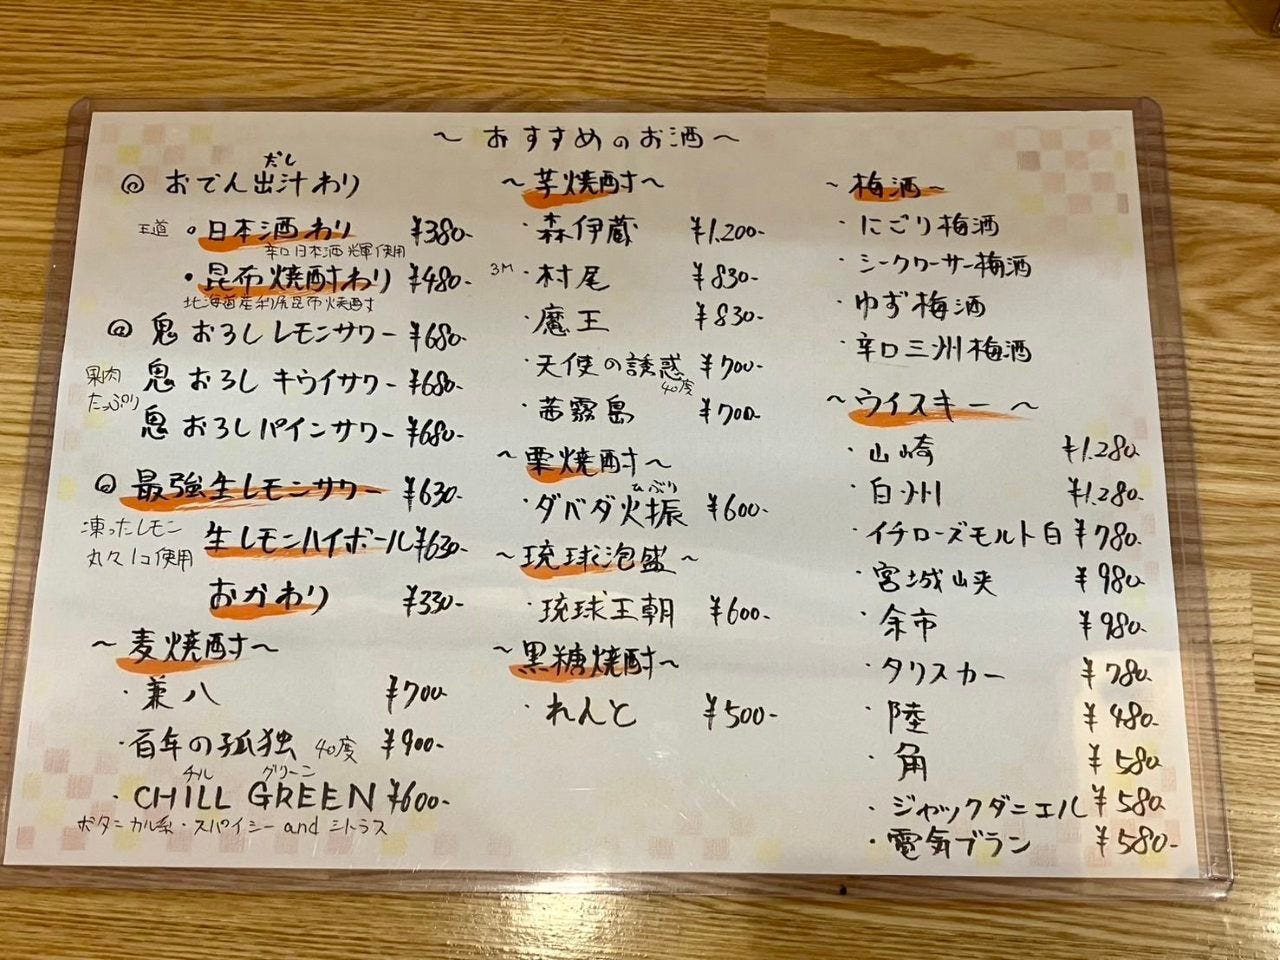 ～おすすめのお酒～
だし
◎おでん出汁わり
王道 ・日本酒わり ¥380-
辛口日本酒 輝使用
・昆布焼酎わり ¥480-
北海道産利尻昆布焼酎
◎鬼おろしレモンサワー ¥680-
果肉たっぷり
鬼おろしキウイサワー ¥680-
鬼おろしパインサワー ¥680-
◎最強生レモンサワー ¥630-
凍ったレモン
丸々1コ使用
生レモンハイボール ¥630-
おかわり ¥330-
～麦焼酎～
・兼八 ¥700-
・百年の孤独 40度 ¥900-
チル グリーン
・CHILL GREEN ¥600-
ボタニカル系・スパイシー and シトラス
～芋焼酎～
・森伊蔵 ¥1,200-
3M ・村尾 ¥830-
・魔王 ¥830-
・天使の誘惑 40度 ¥700-
・茜霧島 ¥700-
～栗焼酎～
ひぶり
・ダバダ火振 ¥600-
～琉球泡盛～
・琉球王朝 ¥600-
～黒糖焼酎～
・れんと ¥500-
～梅酒～
・にごり梅酒
・シークワーサー梅酒
・ゆず梅酒
・辛口三州梅酒
～ウイスキー～
・山崎 ¥1,280-
・白州 ¥1,280-
・イチローズモルト白 ¥780-
・宮城峡 ¥980-
・余市 ¥980-
・タリスカー ¥780-
・陸 ¥480-
・角 ¥580-
・ジャックダニエル ¥580-
・電気ブラン ¥580-